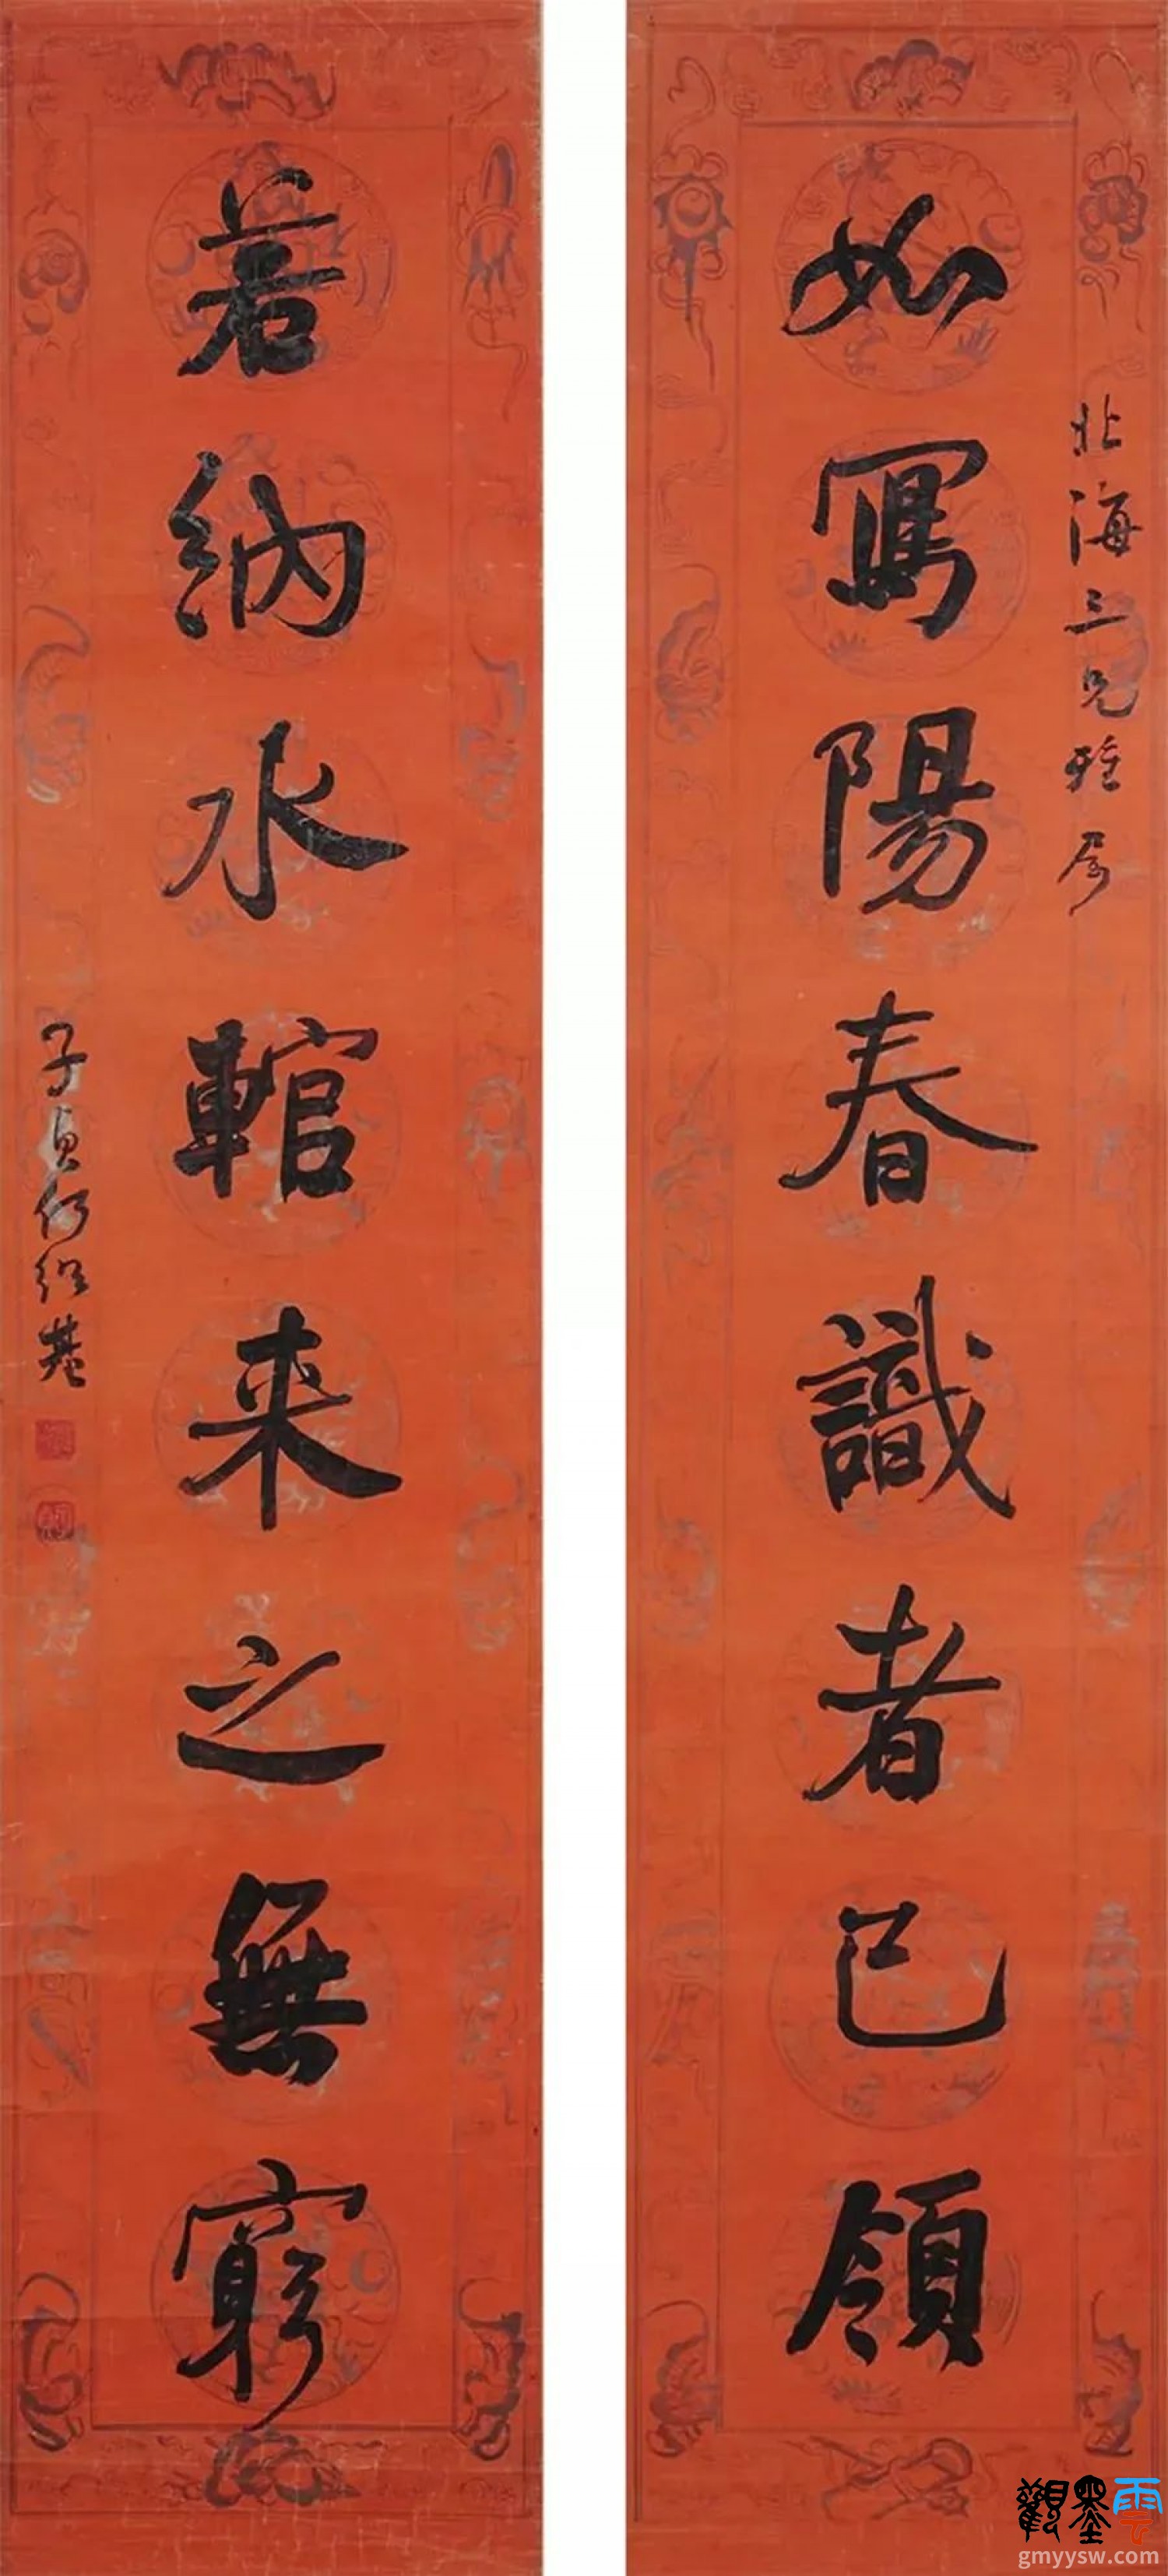 北海三兄雅属
如寫陽春識者已領
若納水輨来之無窮
子貞何紹基
觀墨雲
gmyysw.com